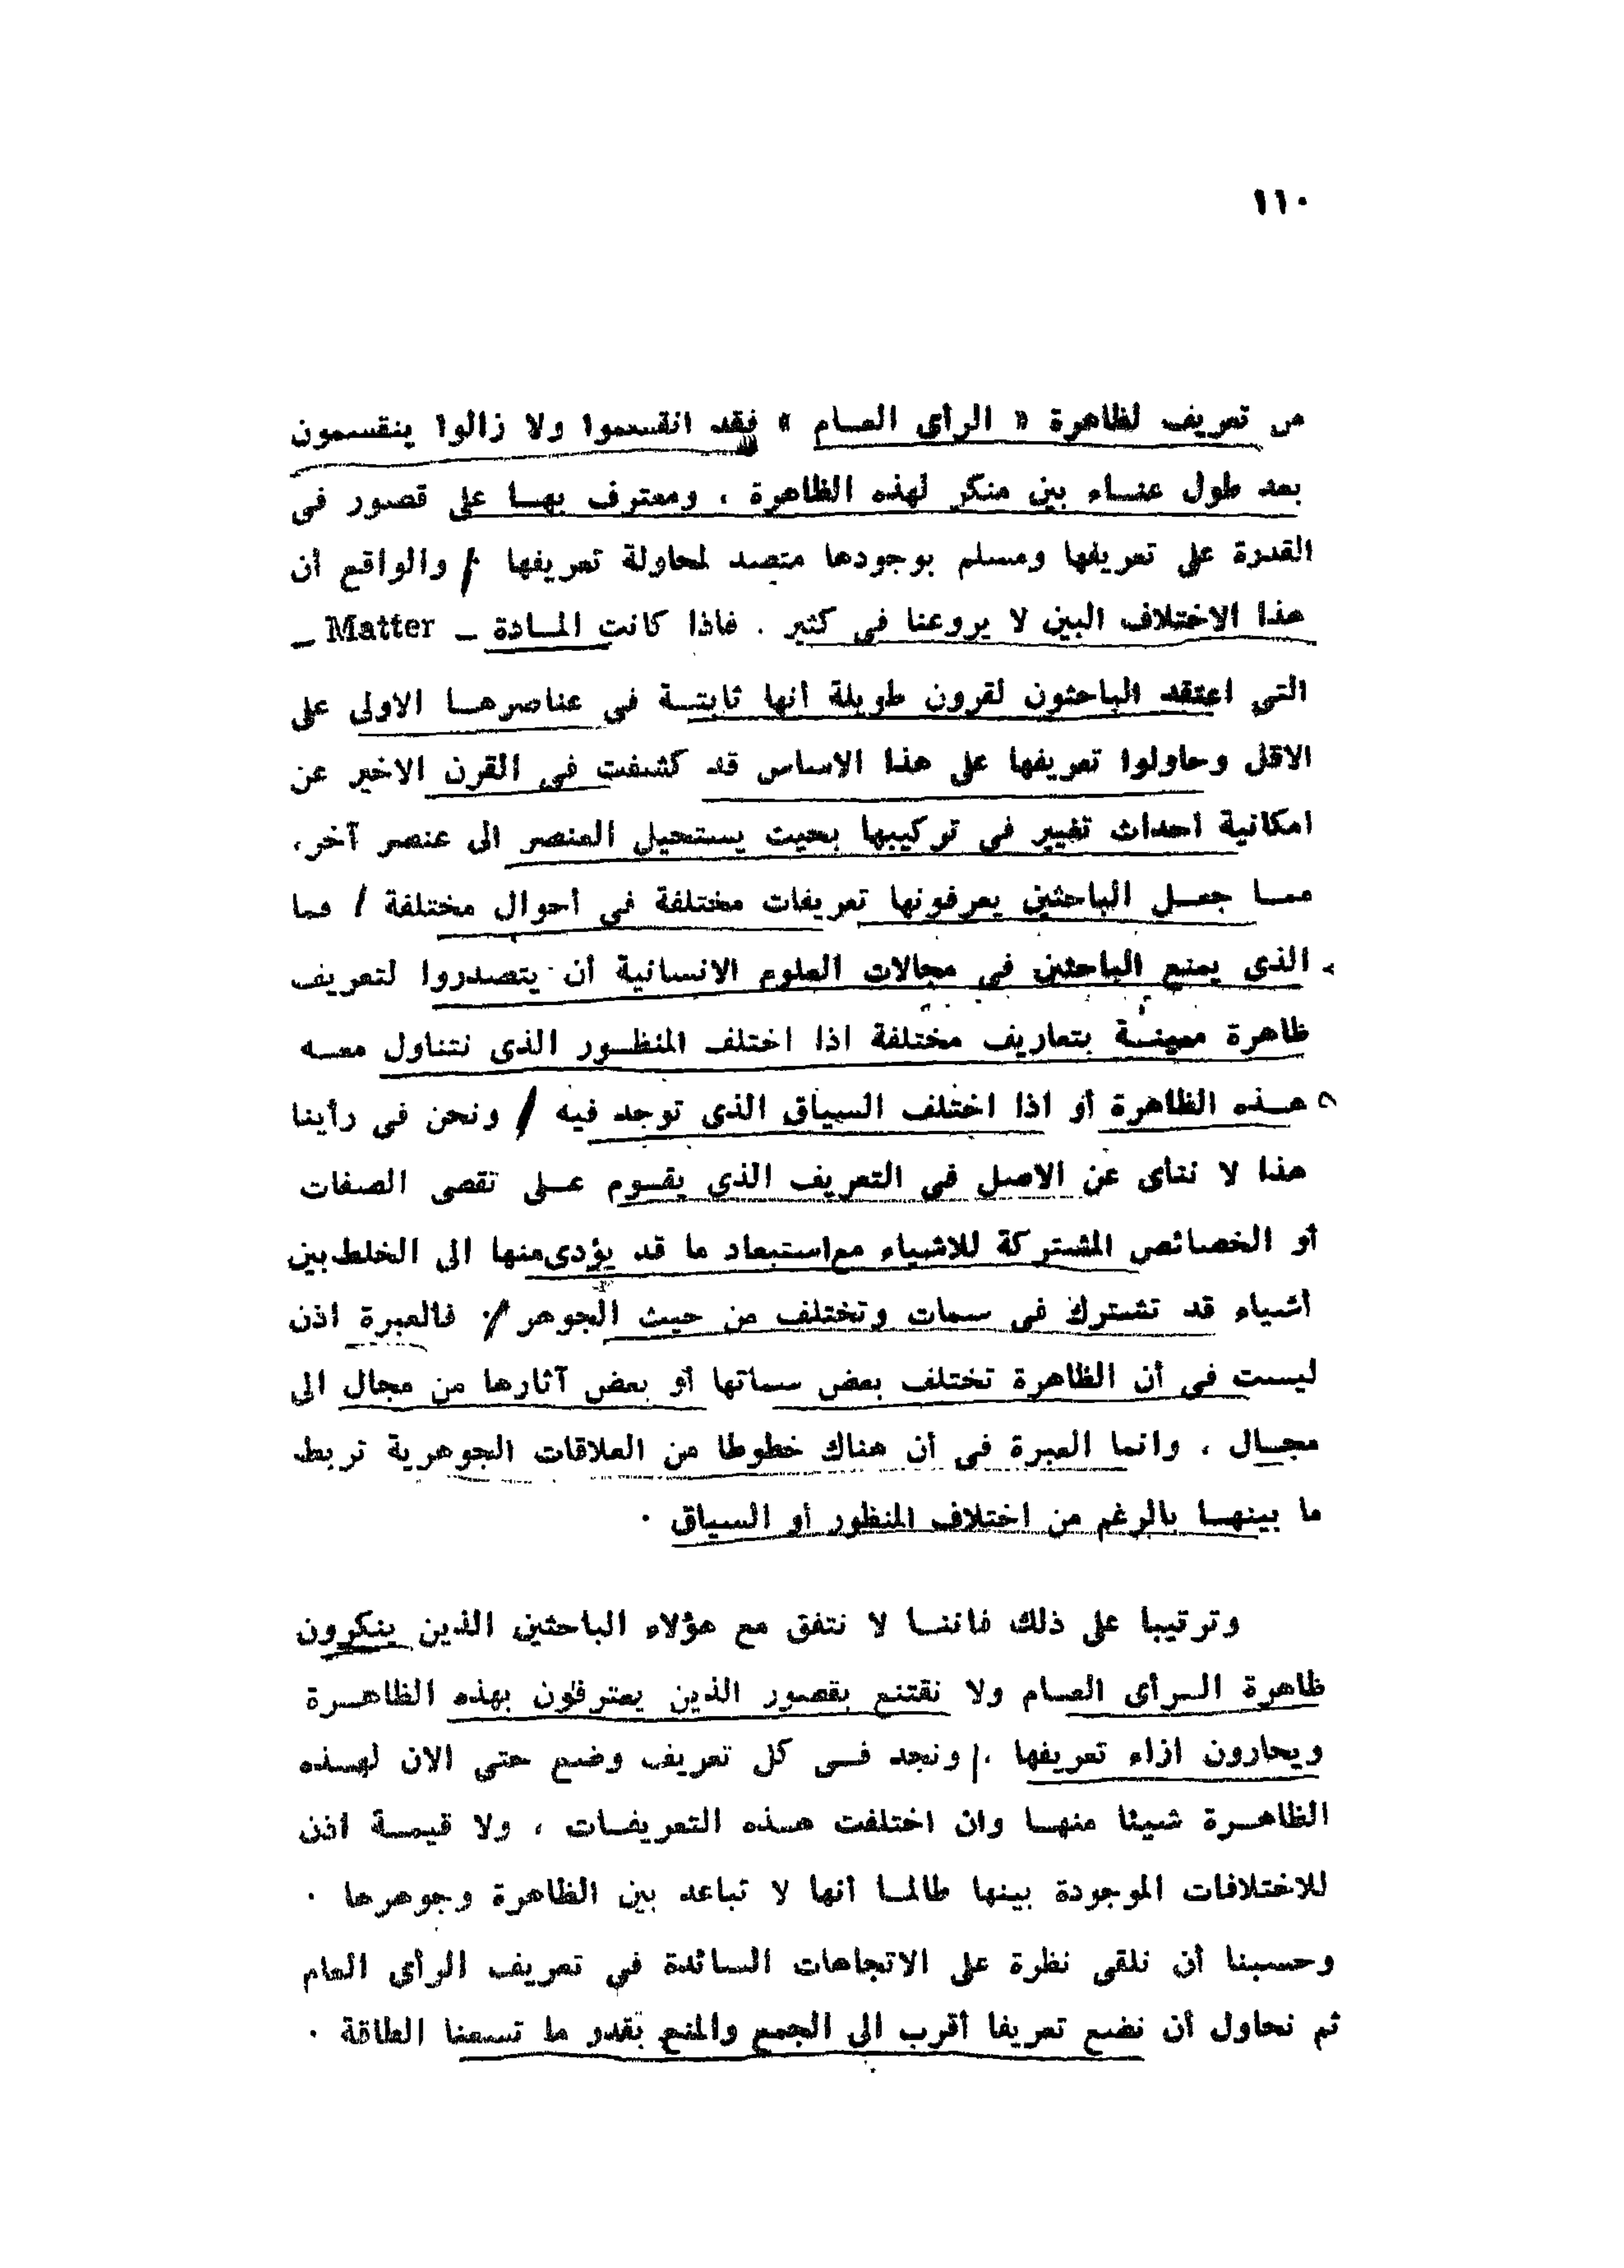 ١١٠
من تعريف لظاهرة « الرأى العام » فقد انقسموا ولا زالوا ينقسمون
بعد طول عناء بين منكر لهذه الظاهرة ، ومعترف بها على قصور فى
القدرة على تعريفها ومسلم بوجودها متصد لمحاولة تعريفها . والواقع أن
هذا الاختلاف البين لا يروعنا فى كثير . فاذا كانت المادة – Matter –
التى اعتقد الباحثون لقرون طويلة أنها ثابتة فى عناصرها الاولى على
الاقل وحاولوا تعريفها على هذا الاساس قد كشفت فى القرن الاخير عن
امكانية احداث تغيير فى تركيبها بحيث يستحيل العنصر الى عنصر آخر،
مما جعل الباحثين يعرفونها تعريفات مختلفة فى أحوال مختلفة / فما
الذى يمنع الباحثين فى مجالات العلوم الانسانية أن يتصدروا لتعريف
ظاهرة معينة بتعاريف مختلفة اذا اختلف المنظور الذى نتناول معه
هذه الظاهرة أو اذا اختلف السياق الذى توجد فيه / ونحن فى رأينا
هذا لا ننأى عن الاصل فى التعريف الذى يقوم على تقصى الصفات
أو الخصائص المشتركة للاشياء مع استبعاد ما قد يؤدى منها الى الخلط بين
أشياء قد تشترك فى سمات وتختلف من حيث الجوهر . فالعبرة اذن
ليست فى أن الظاهرة تختلف بعض سماتها أو بعض آثارها من مجال الى
مجال ، وانما العبرة فى أن هناك خطوطا من العلاقات الجوهرية تربط
ما بينها بالرغم من اختلاف المنظور أو السياق .
وترتيبا على ذلك فاننا لا نتفق مع هؤلاء الباحثين الذين ينكرون
ظاهرة الرأى العام ولا نقتنع بقصور الذين يعترفون بهذه الظاهرة
ويحارون ازاء تعريفها . ونجد فى كل تعريف وضع حتى الان لهذه
الظاهرة شيئا منها وان اختلفت هذه التعريفات ، ولا قيمة اذن
للاختلافات الموجودة بينها طالما أنها لا تباعد بين الظاهرة وجوهرها .
وحسبنا أن نلقى نظرة على الاتجاهات السائدة فى تعريف الرأى العام
ثم نحاول أن نضع تعريفا أقرب الى الجمع والمنع بقدر ما تسعنا الطاقة .